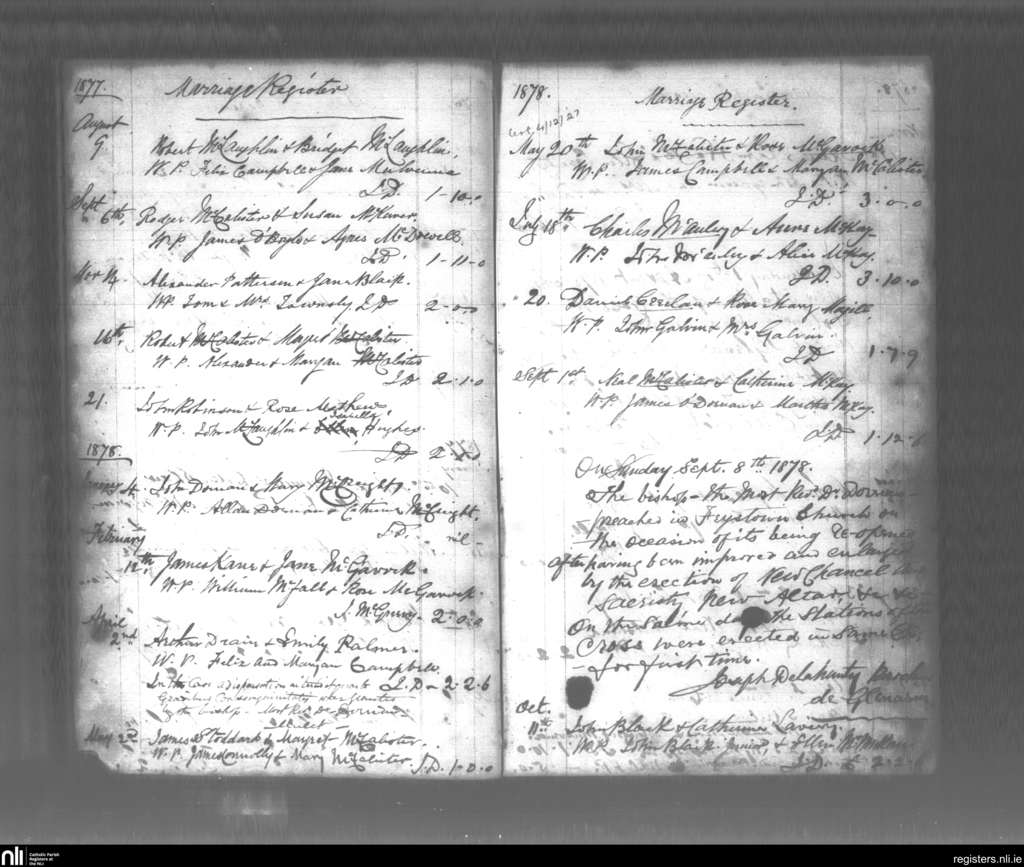 1877.
Marriage Register
August
9. Robert McLaughlin & Bridget McLaughlin.
W.P. Felix Campbell & Jane
J.D. 1-10-0
Sept 6th, Rodger McAlister & Susan
W.P. James O'Boyle & Agnes McDowell.
J.D. 1-11-0
Nov 14. Alexander Patterson & Jane Black.
W.P. Tom & Mrs. Townsly J.D. 2-0-0
16th, Robert McAlister & Margret McAlister
W.P. Alexander & Margan McAlister
J.D 2-1-0
21. John Robinson & Rose Mathews
W.P. John McLaughlin & Hughes.
J.D 2
1878.
4. John Dornan & Mary McCreight.
W.P. Allan Dornan & Catherine McCreight.
J.D. nil-
February
12th, James Kane & Jane McGavock.
W.P. William McFall & Rose McGavock
J. McGreevy- 2-0-0
April
2nd Arthur Drain & Emily Palmer.
W.P. Felix and Margan Campbell
In the case a dispensation
J.D - 2-2-6
the bishop - Most Rev. Dr Dorrian
May 2nd James Stoddard & Margret McAlister.
W.P. James Connolly & Mary McAlister. J.D. 1-0-0
1878.
Marriage Register.
4/12/27
May 20th John McAlister & Rose McGavock
W.P. James Campbell & Margan McAlister
J.D 3-0-0
July 18th Charles McAuley & Anne McKay
W.P. John McAuley & Alice McKay.
J.D. 3-10-0
20. Daniel & Rose Mary
W.P. John Galvin & Mrs Galvin.
J.D 1-7-9
Sept 1st Neal McAlister & Catherine McKay
W.P. James O'Dornan & Martha McKay.
J.D. 1-12-6
On Sunday Sept. 8th 1878.
The bishop - the Most Revd. Dr. Dorrian
preached in Feystown Church on
the occasion of its being Re-opened
after having been improved and enlarged
by the erection of New Chancel
Sacristy, New Altar, &c &c
On the same day the Stations of the
Cross were erected in same
-for first time.
Joseph Delahunty
de Glenarm
Oct.
11th John Black & Catherine Lavery
W.P. John Black & Ellen McMullan
J.D. 2-2-6
nli
Catholic Parish
Registers at
the NLI
registers.nli.ie